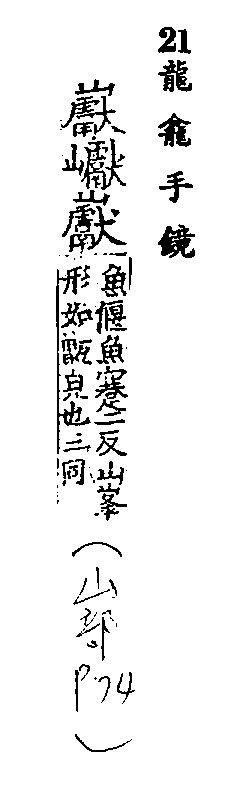 21龍龕手鏡
巘
魚偃魚蹇二反山峯
形如甑皃也三同
(山部 P74)